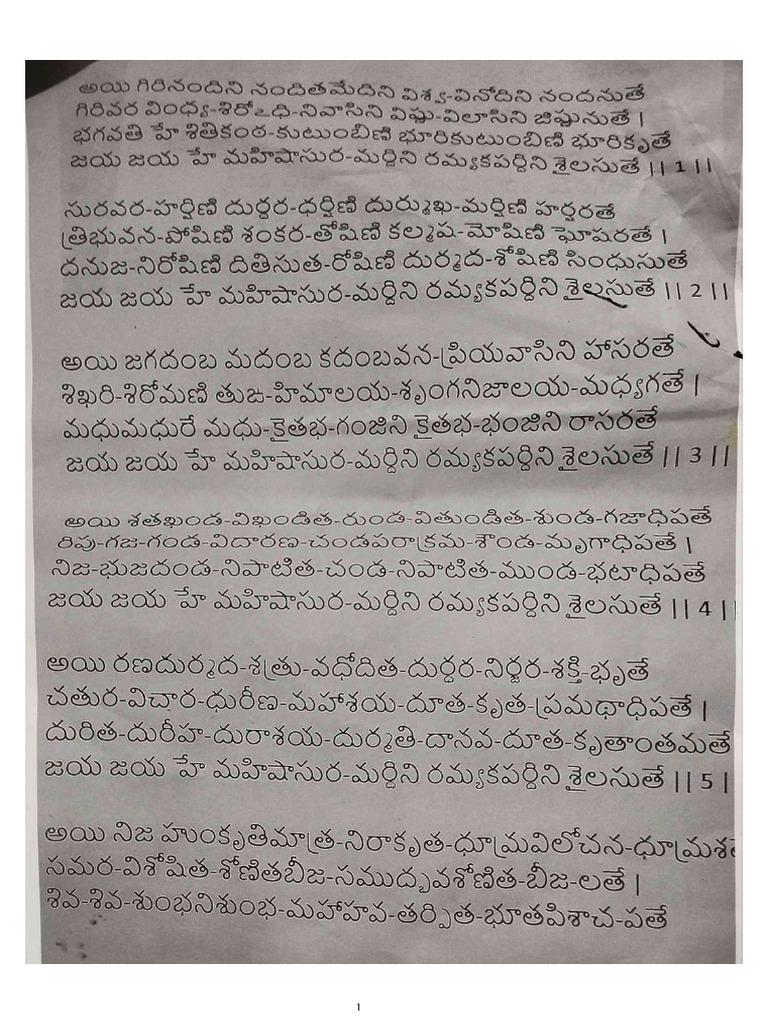 అయి గిరినందిని నందితమేదిని విశ్వ-వినోదిని నందనుతే
గిరివర వింధ్య-శిరోஉధి-నివాసిని విష్ణు-విలాసిని జిష్ణునుతే |
భగవతి హే శితికంఠ-కుటుంబిణి భూరికుటుంబిణి భూరికృతే
జయ జయ హే మహిషాసుర-మర్దిని రమ్యకపర్దిని శైలసుతే || 1 ||
సురవర-హర్షిణి దుర్ధర-ధర్షిణి దుర్ముఖ-మర్షిణి హర్షరతే
త్రిభువన-పోషిణి శంకర-తోషిణి కల్మష-మోషిణి ఘోషరతే |
దనుజ-నిరోషిణి దితిసుత-రోషిణి దుర్మద-శోషిణి సింధుసుతే
జయ జయ హే మహిషాసుర-మర్దిని రమ్యకపర్దిని శైలసుతే || 2 ||
అయి జగదంబ మదంబ కదంబవన-ప్రియవాసిని హాసరతే
శిఖరి-శిరోమణి తుఙ-హిమాలయ-శృంగనిజాలయ-మధ్యగతే |
మధుమధురే మధు-కైతభ-గంజిని కైతభ-భంజిని రాసరతే
జయ జయ హే మహిషాసుర-మర్దిని రమ్యకపర్దిని శైలసుతే || 3 ||
అయి శతఖండ-విఖండిత-రుండ-వితుండిత-శుండ-గజాధిపతే
రిపు-గజ-గండ-విదారణ-చండపరాక్రమ-శౌండ-మృగాధిపతే |
నిజ-భుజదండ-నిపాటిత-చండ-నిపాటిత-ముండ-భటాధిపతే
జయ జయ హే మహిషాసుర-మర్దిని రమ్యకపర్దిని శైలసుతే || 4 ||
అయి రణదుర్మద-శత్రు-వధోదిత-దుర్ధర-నిర్జర-శక్తి-భృతే
చతుర-విచార-ధురీణ-మహాశయ-దూత-కృత-ప్రమథాధిపతే |
దురిత-దురీహ-దురాశయ-దుర్మతి-దానవ-దూత-కృతాంతమతే
జయ జయ హే మహిషాసుర-మర్దిని రమ్యకపర్దిని శైలసుతే || 5 |
అయి నిజ హుంకృతిమాత్ర-నిరాకృత-ధూమ్రవిలోచన-ధూమ్రశతే
సమర-విశోషిత-శోణితబీజ-సముద్భవశోణిత-బీజ-లతే |
శివ-శివ-శుంభనిశుంభ-మహాహవ-తర్పిత-భూతపిశాచ-పతే
1